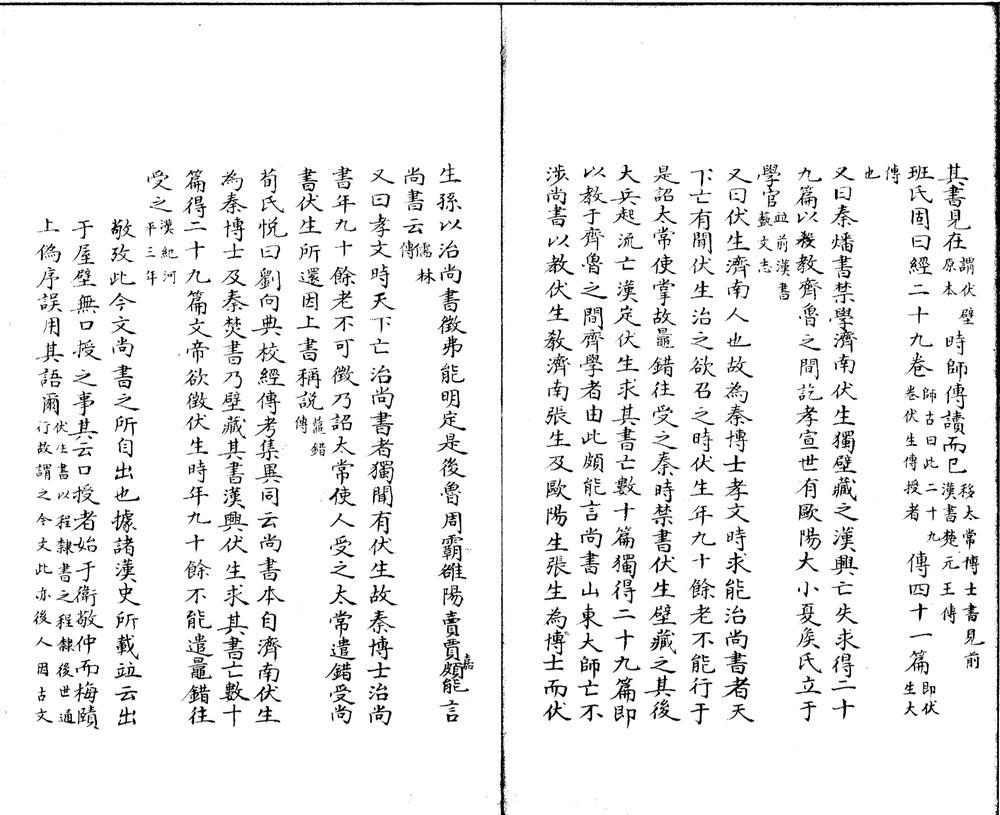 其書見在謂伏壁原本時師傳讀而已移太常博士書見前漢書楚元王傳
班氏固曰經二十九卷師古曰此二十九卷伏生傳授者傳四十一篇即伏生大
傳
也
又曰秦燔書禁學濟南伏生獨壁藏之漢興亡失求得二十
九篇以教齊魯之間訖孝宣世有歐陽大小夏侯氏立于
學官竝前漢書藝文志
又曰伏生濟南人也故為秦博士孝文時求能治尚書者天
下亡有聞伏生治之欲召之時伏生年九十餘老不能行于
是詔太常使掌故鼂錯往受之秦時禁書伏生壁藏之其後
大兵起流亡漢定伏生求其書亡數十篇獨得二十九篇即
以教于齊魯之間齊學者由此頗能言尚書山東大師亡不
涉尚書以教伏生教濟南張生及歐陽生張生為博士而伏
生孫以治尚書徵弗能明定是後魯周霸雒陽賣賈嘉頗能言
尚書云儒林傳
又曰孝文時天下亡治尚書者獨聞有伏生故秦博士治尚
書年九十餘老不可徵乃詔太常使人受之太常遣錯受尚
書伏生所還因上書稱說鼂錯傳
荀氏悅曰劉向典校經傳考集異同云尚書本自濟南伏生
為秦博士及秦焚書乃壁藏其書漢興伏生求其書亡數十
篇得二十九篇文帝欲徵伏生時年九十餘不能遣鼂錯往
受之漢紀河平三年
敬攷此今文尚書之所自出也據諸漢史所載竝云出
于屋壁無口授之事其云口授者始于衛敬仲而梅賾
上偽序誤用其語爾伏生書以程隸書之程隸後世通行故謂之今文此亦後人因古文